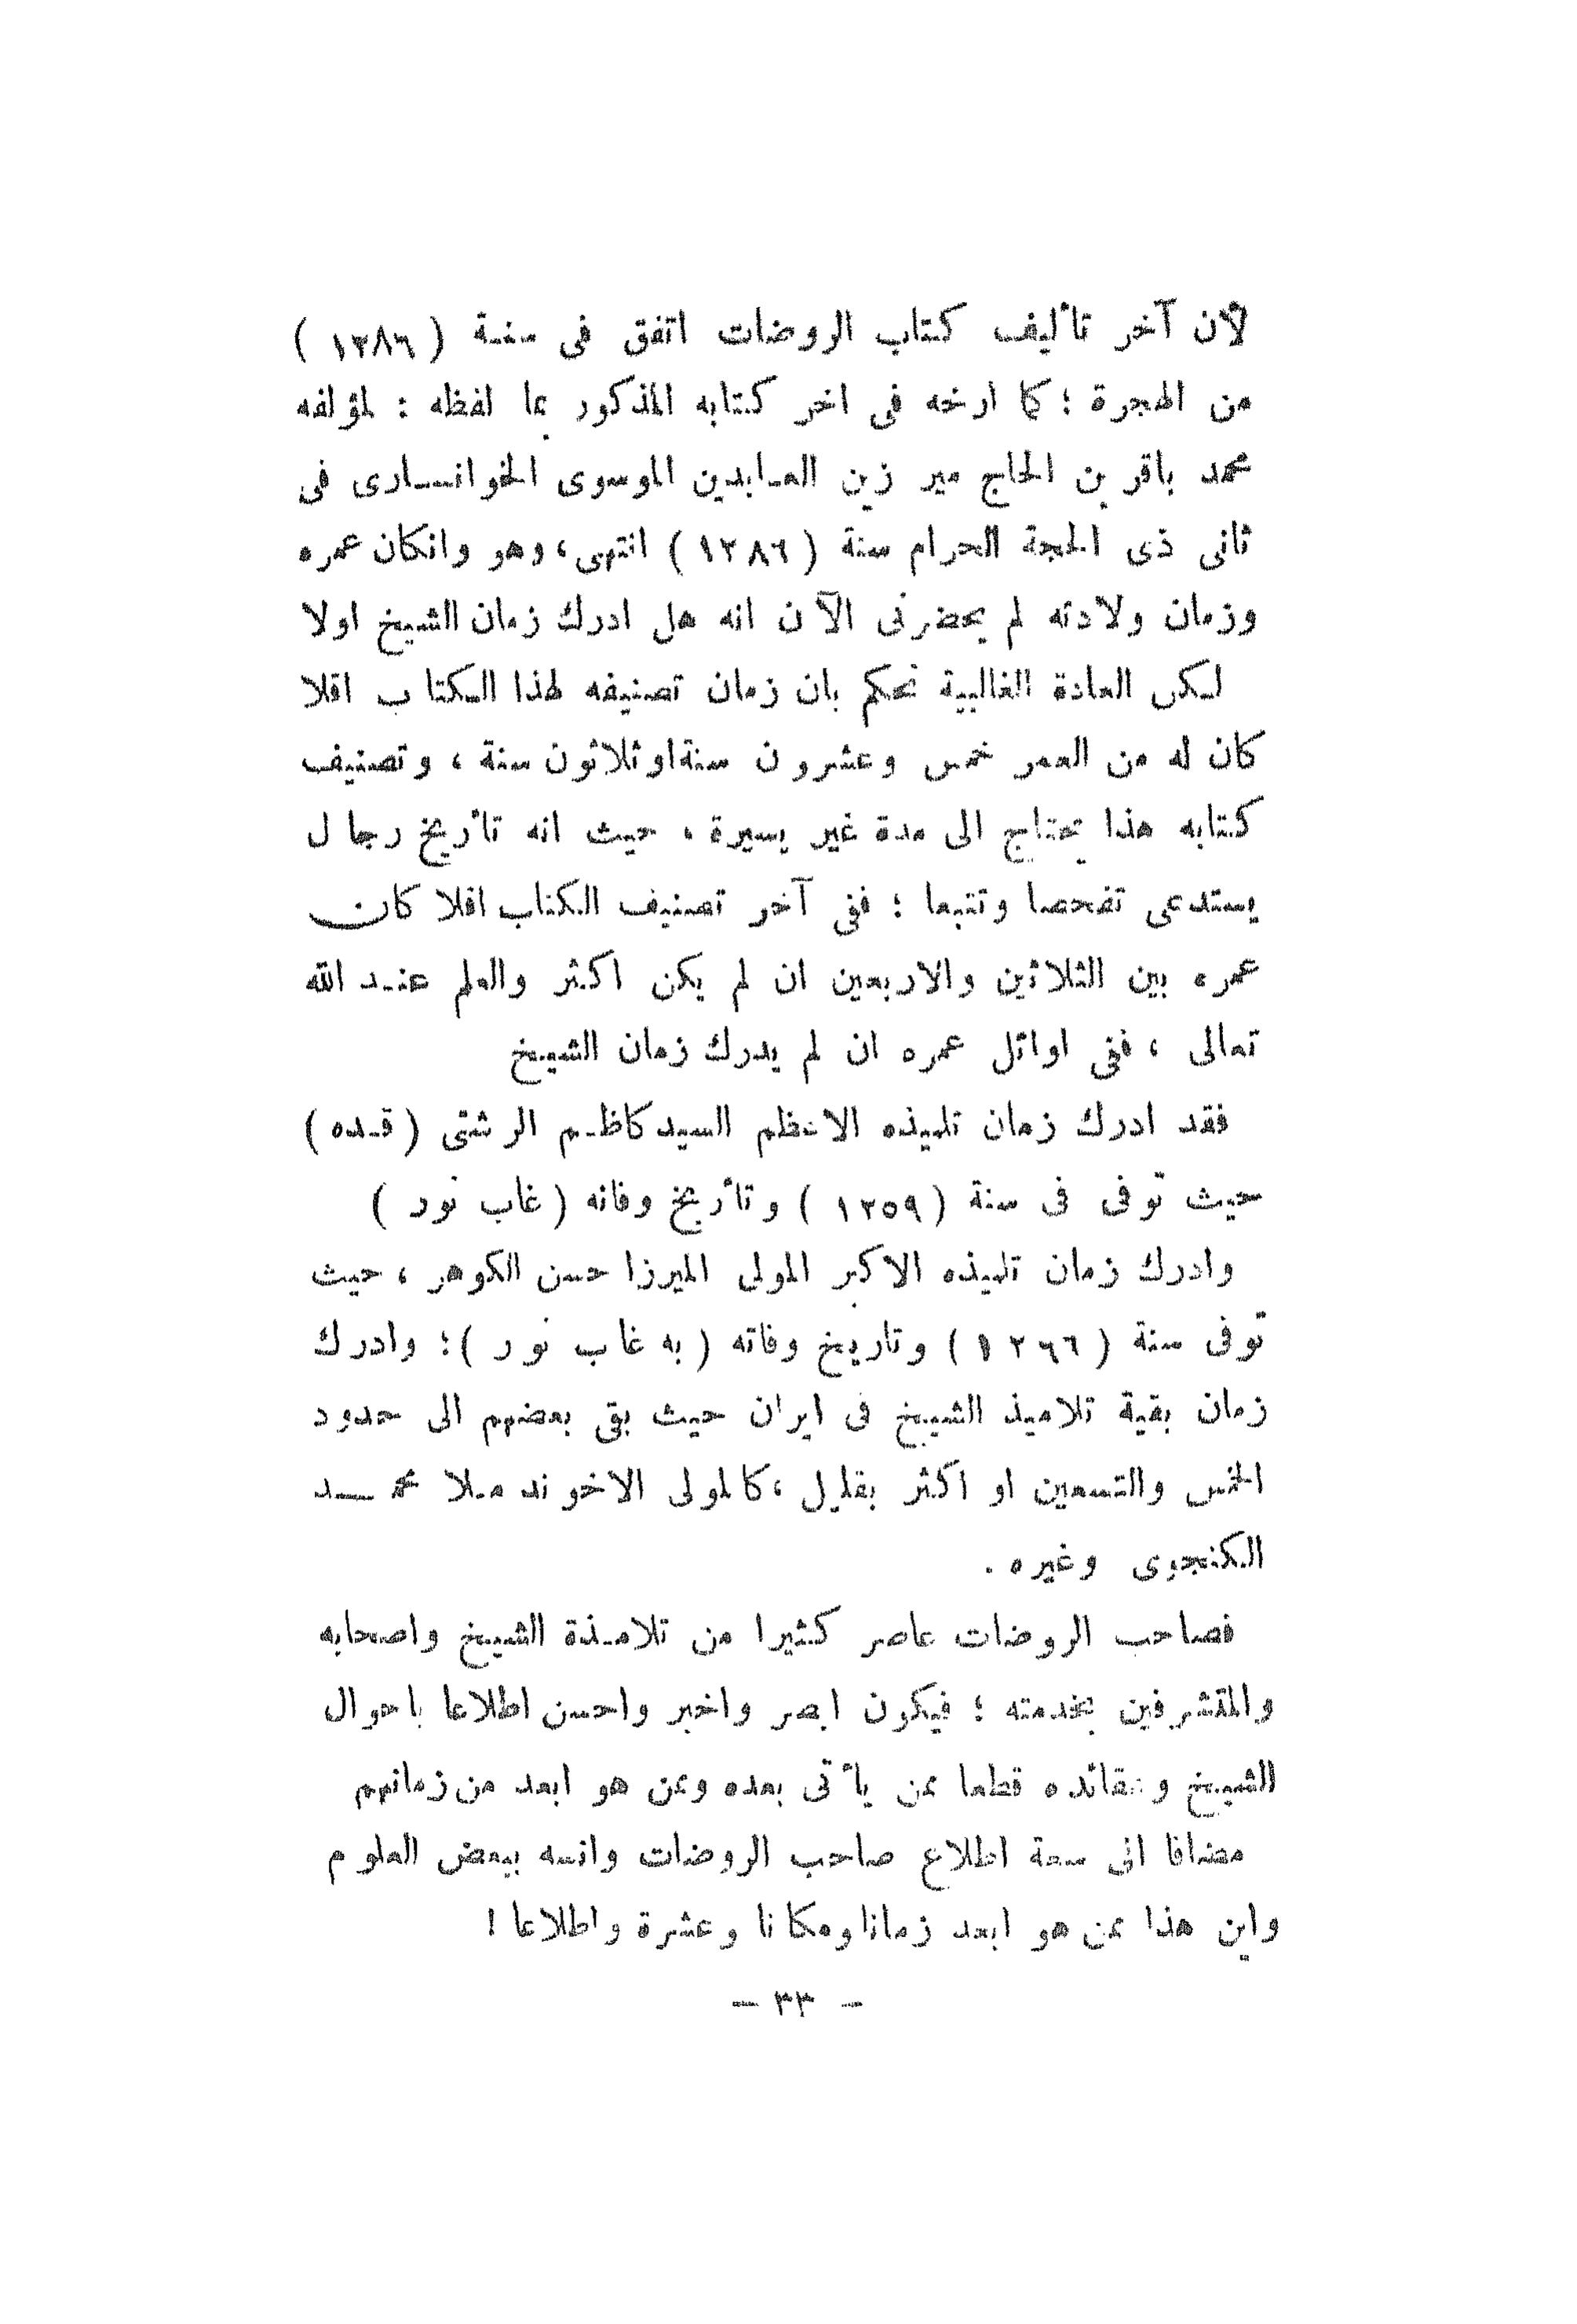 لأن آخر تأليف كتاب الروضات اتفق فى سنة ( ١٢٨٦ )
من الهجرة ؛ كما ارخه فى اخر كتابه المذكور بما لفظه : لمؤلفه
محمد باقر بن الحاج مير زين العابدين الموسوى الخوانسارى فى
ثانى ذى الحجة الحرام سنة ( ١٢٨٦ ) انتهى، وهو وانكان عمره
وزمان ولادته لم يحضرنى الآن انه هل ادرك زمان الشيخ اولا
لكن العادة الغالبية تحكم بان زمان تصنيفه لهذا الكتاب اقلا
كان له من العمر خمس وعشرون سنة اوثلاثون سنة ، وتصنيف
كتابه هذا يحتاج الى مدة غير يسيرة ، حيث انه تأريخ رجال
يستدعى تفحصا وتتبعا ؛ ففى آخر تصنيف الكتاب اقلا كان
عمره بين الثلاثين والاربعين ان لم يكن اكثر والعلم عند الله
تعالى ، ففى اوائل عمره ان لم يدرك زمان الشيخ
فقد ادرك زمان تلميذه الاعظم السيد كاظم الرشتى ( قده )
حيث توفى فى سنة ( ١٢٥٩ ) وتأريخ وفاته ( غاب نور )
وادرك زمان تلميذه الاكبر المولى الميرزا حسن الكوهر ، حيث
توفى سنة ( ١٢٦٦ ) وتاريخ وفاته ( به غاب نور ) ؛ وادرك
زمان بقية تلاميذ الشيخ فى ايران حيث بقى بعضهم الى حدود
الخمس والتسعين او اكثر بقليل ، كالمولى الاخوند ملا محمد
الكنجوى وغيره .
فصاحب الروضات عاصر كثيرا من تلامذة الشيخ واصحابه
والمتشرفين بخدمته ؛ فيكون ابصر واخبر واحسن اطلاعا باحوال
الشيخ وعقائده قطعا ممن يأتى بعده وممن هو ابعد من زمانهم
مضافا الى سعة اطلاع صاحب الروضات وانسه ببعض العلوم
واين هذا ممن هو ابعد زمانا ومكانا وعشرة واطلاعا !
– ٣٣ –